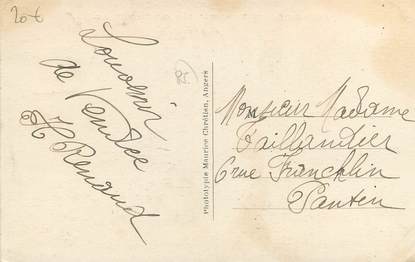 20 €
Souvenir
de Vendée
H Renaud
85
Phototypie Maurice Chrétien, Angers
Monsieur Madame
Taillandier
6 rue Francklin
Pantin